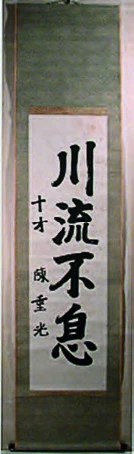 川流不息
十才 陳重光